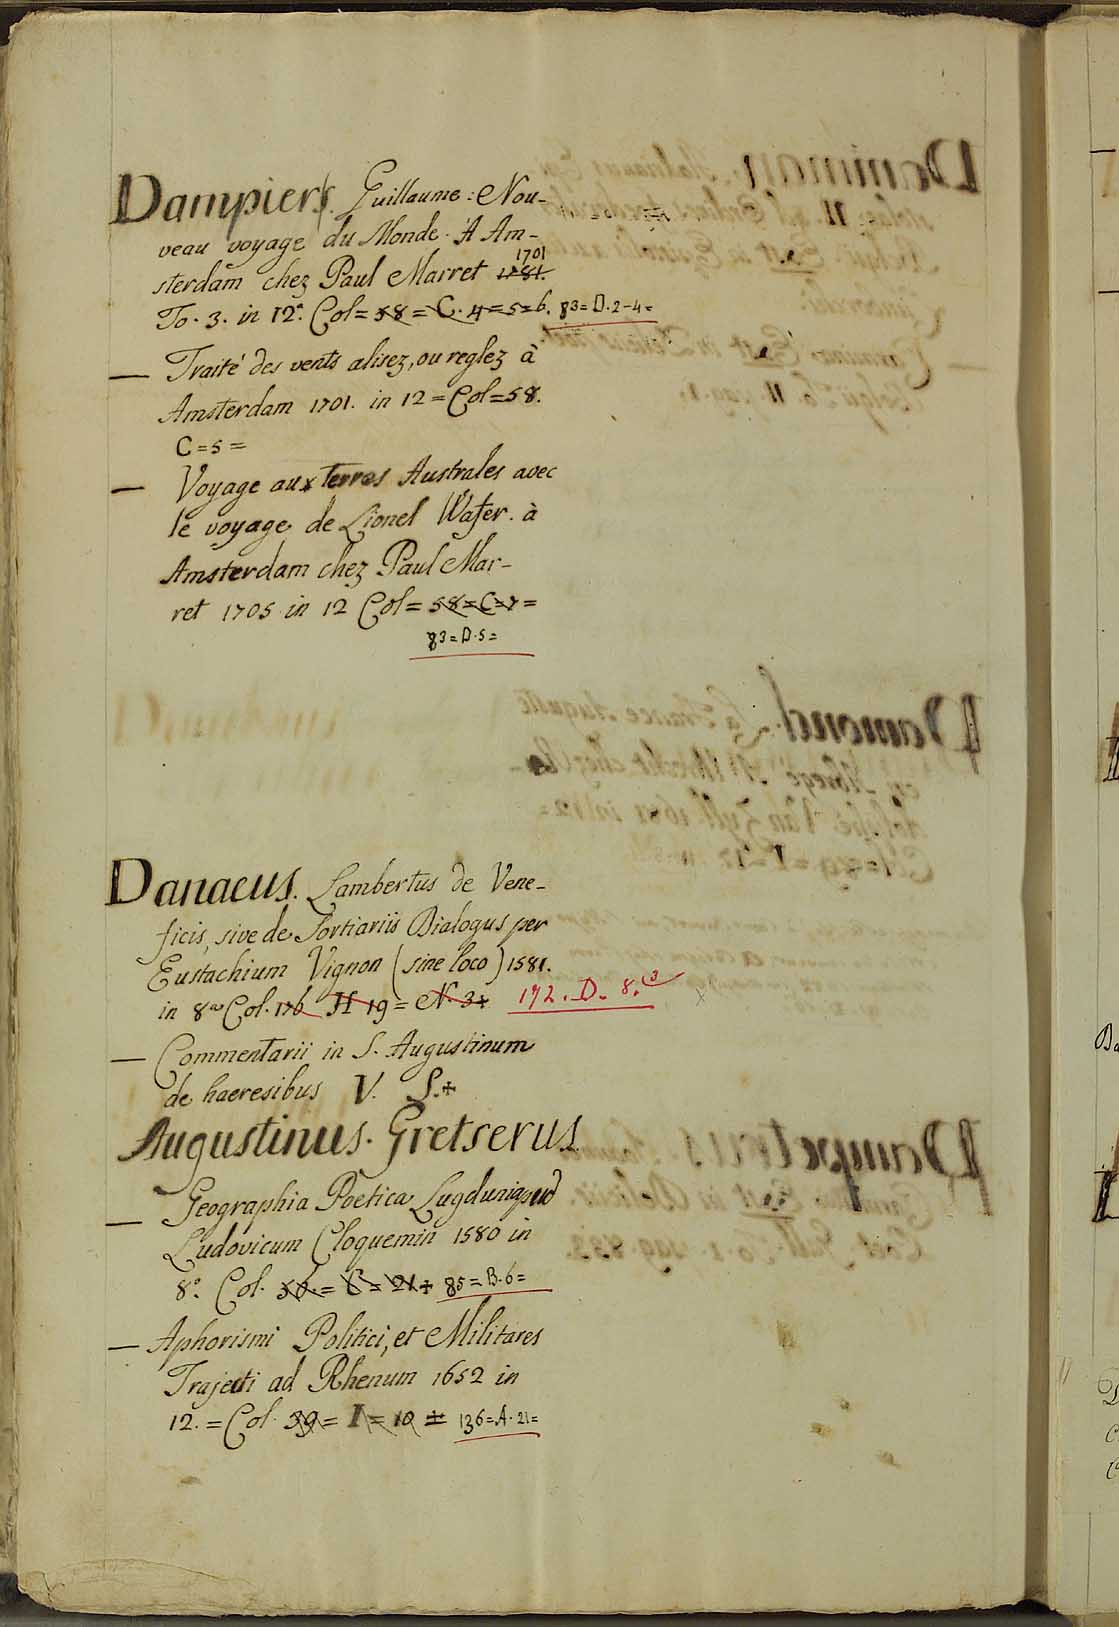 Dampier. Guillaume: Nou-
veau voyage du Monde. A Am-
sterdam chez Paul Marret 1781. 1701
To. 3. in 12°. Col= 58= C. 4=5=6. 83=D.2-4=
— Traité des vents alisez, ou reglez à
Amsterdam 1701. in 12= Col=58.
C=5=
— Voyage aux Terres Australes avec
le voyage de Lionel Wafer. à
Amsterdam chez Paul Mar-
ret 1705 in 12 Col= 58=C=7=
83=D.5=
Danaeus. Lambertus de Vene-
ficis, sive de Sortiariis Dialogus per
Eustachium Vignon (sine loco) 1581.
in 8vo Col. 176 H 19= N. 3+ 172. D. 8.3
— Commentarii in S. Augustinum
de haeresibus V. S.+
Augustinus. Gretserus.
— Geographia Poetica Lugduni apud
Ludovicum Cloquemin 1580 in
8°. Col. 56.= C= 21+ 85=B.6=
— Aphorismi Politici, et Militares
Trajecti ad Rhenum 1652 in
12.= Col. 39= I= 10 + 136=A.21=